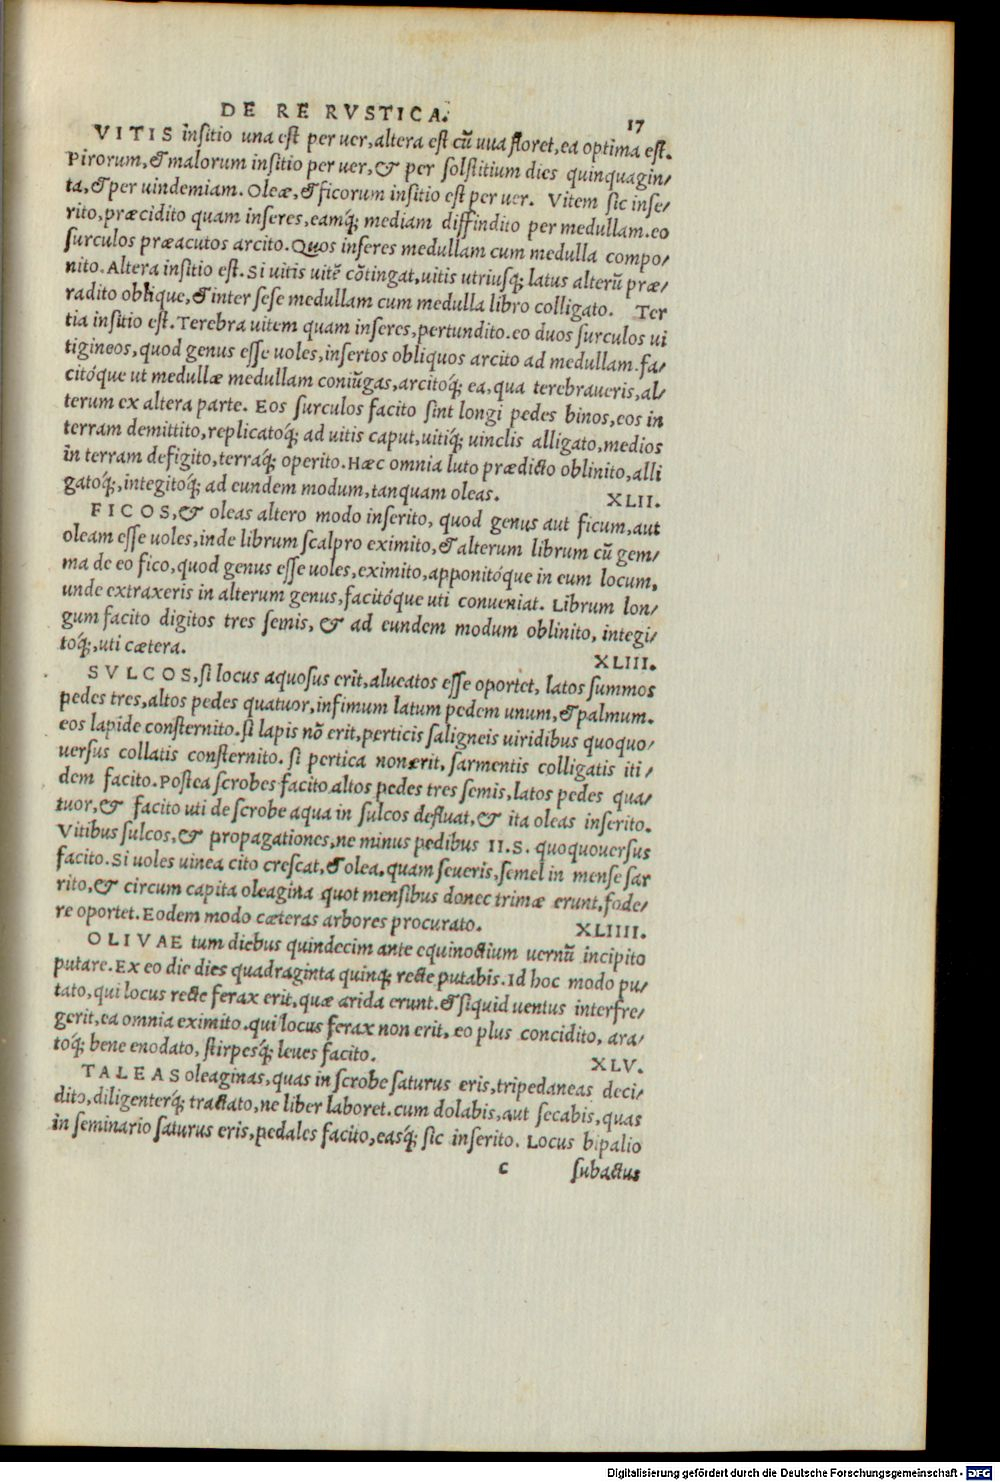 DE RE RVSTICA.
17
VITIS insitio una est per uer, altera est cũ uua floret, ea optima est.
Pirorum, & malorum insitio per uer, & per solstitium dies quinquagin/
ta, & per uindemiam. Oleæ, & ficorum insitio est per uer. Vitem sic inse/
rito, præcidito quam inseres, eamq́; mediam diffindito per medullam. eo
surculos præacutos arcito. Quos inseres medullam cum medulla compo/
nito. Altera insitio est. Si uitis uitē cõtingat, uitis utriusq; latus alterũ præ/
radito oblique, & inter sese medullam cum medulla libro colligato. Ter
tia insitio est. Terebra uitem quam inseres, pertundito. eo duos surculos ui
tigineos, quod genus esse uoles, insertos obliquos arcito ad medullam. fa/
citóque ut medullæ medullam coniũgas, arcitoq́; ea, qua terebraueris, al/
terum ex altera parte. Eos surculos facito sint longi pedes binos, eos in
terram demittito, replicatoq́; ad uitis caput, uitiq́; uinclis alligato, medios
in terram defigito, terraq́; operito. Hæc omnia luto prædicto oblinito, alli
gatoq́;, integitoq́; ad eundem modum, tanquam oleas. XLII.
FICOS, & oleas altero modo inserito, quod genus aut ficum, aut
oleam esse uoles, inde librum scalpro eximito, & alterum librum cũ gem/
ma de eo fico, quod genus esse uoles, eximito, apponitóque in eum locum,
unde extraxeris in alterum genus, facitóque uti conueniat. Librum lon/
gum facito digitos tres semis, & ad eundem modum oblinito, integi/
toq́;, uti cætera. XLIII.
SVLCOS, si locus aquosus erit, alueatos esse oportet, latos summos
pedes tres, altos pedes quatuor, infimum latum pedem unum, & palmum.
eos lapide consternito. si lapis nõ erit, perticis saligneis uiridibus quoquo/
uersus collatis consternito. si pertica non erit, sarmentis colligatis iti/
dem facito. Postea scrobes facito altos pedes tres semis, latos pedes qua/
tuor, & facito uti de scrobe aqua in sulcos defluat, & ita oleas inserito.
Vitibus sulcos, & propagationes, ne minus pedibus II.S. quoquouersus
facito. Si uoles uinea cito crescat, & olea, quam seueris, semel in mense sar
rito, & circum capita oleagina quot mensibus donec trimæ erunt, fode/
re oportet. Eodem modo cæteras arbores procurato. XLIIII.
OLIVAE tum diebus quindecim ante equinoctium uernũ incipito
putare. Ex eo die dies quadraginta quinq; recte putabis. Id hoc modo pu/
tato, qui locus recte ferax erit, quæ arida erunt. & siquid uentus interfre/
gerit, ea omnia eximito. qui locus ferax non erit, eo plus concidito, ara/
toq́; bene enodato, stirpesq́; leues facito. XLV.
TALEAS oleaginas, quas in scrobe saturus eris, tripedaneas deci/
dito, diligenterq́; tractato, ne liber laboret. cum dolabis, aut secabis, quas
in seminario saturus eris, pedales facito, easq́; sic inserito. Locus bipalio
c subactus
Digitalisierung gefördert durch die Deutsche Forschungsgemeinschaft - DFG